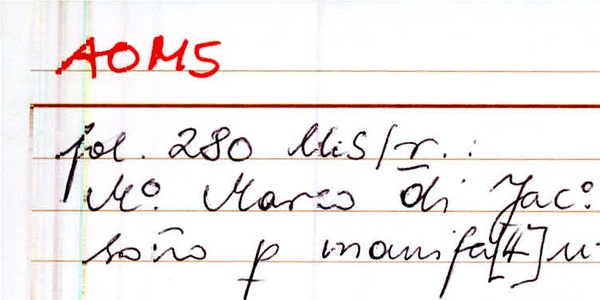 AOM5
fol. 280 MiS/r.:
Mº. Marco di Jacº.
p manifa[tt]u